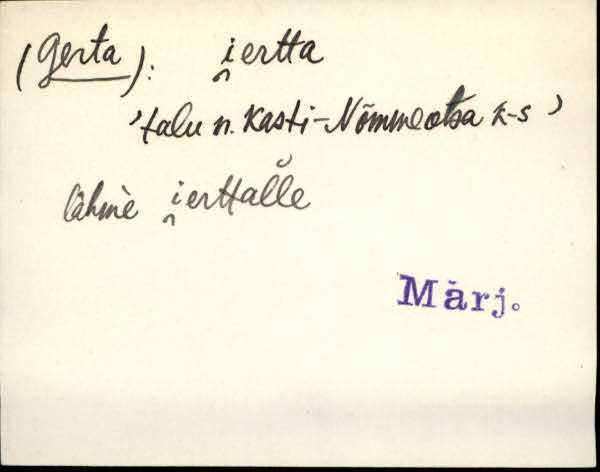 (Gerta): i̯ertta
'talu n. Kasti-Nõmmeotsa k-s'
lähmè i̯erttal̆le
Märj.